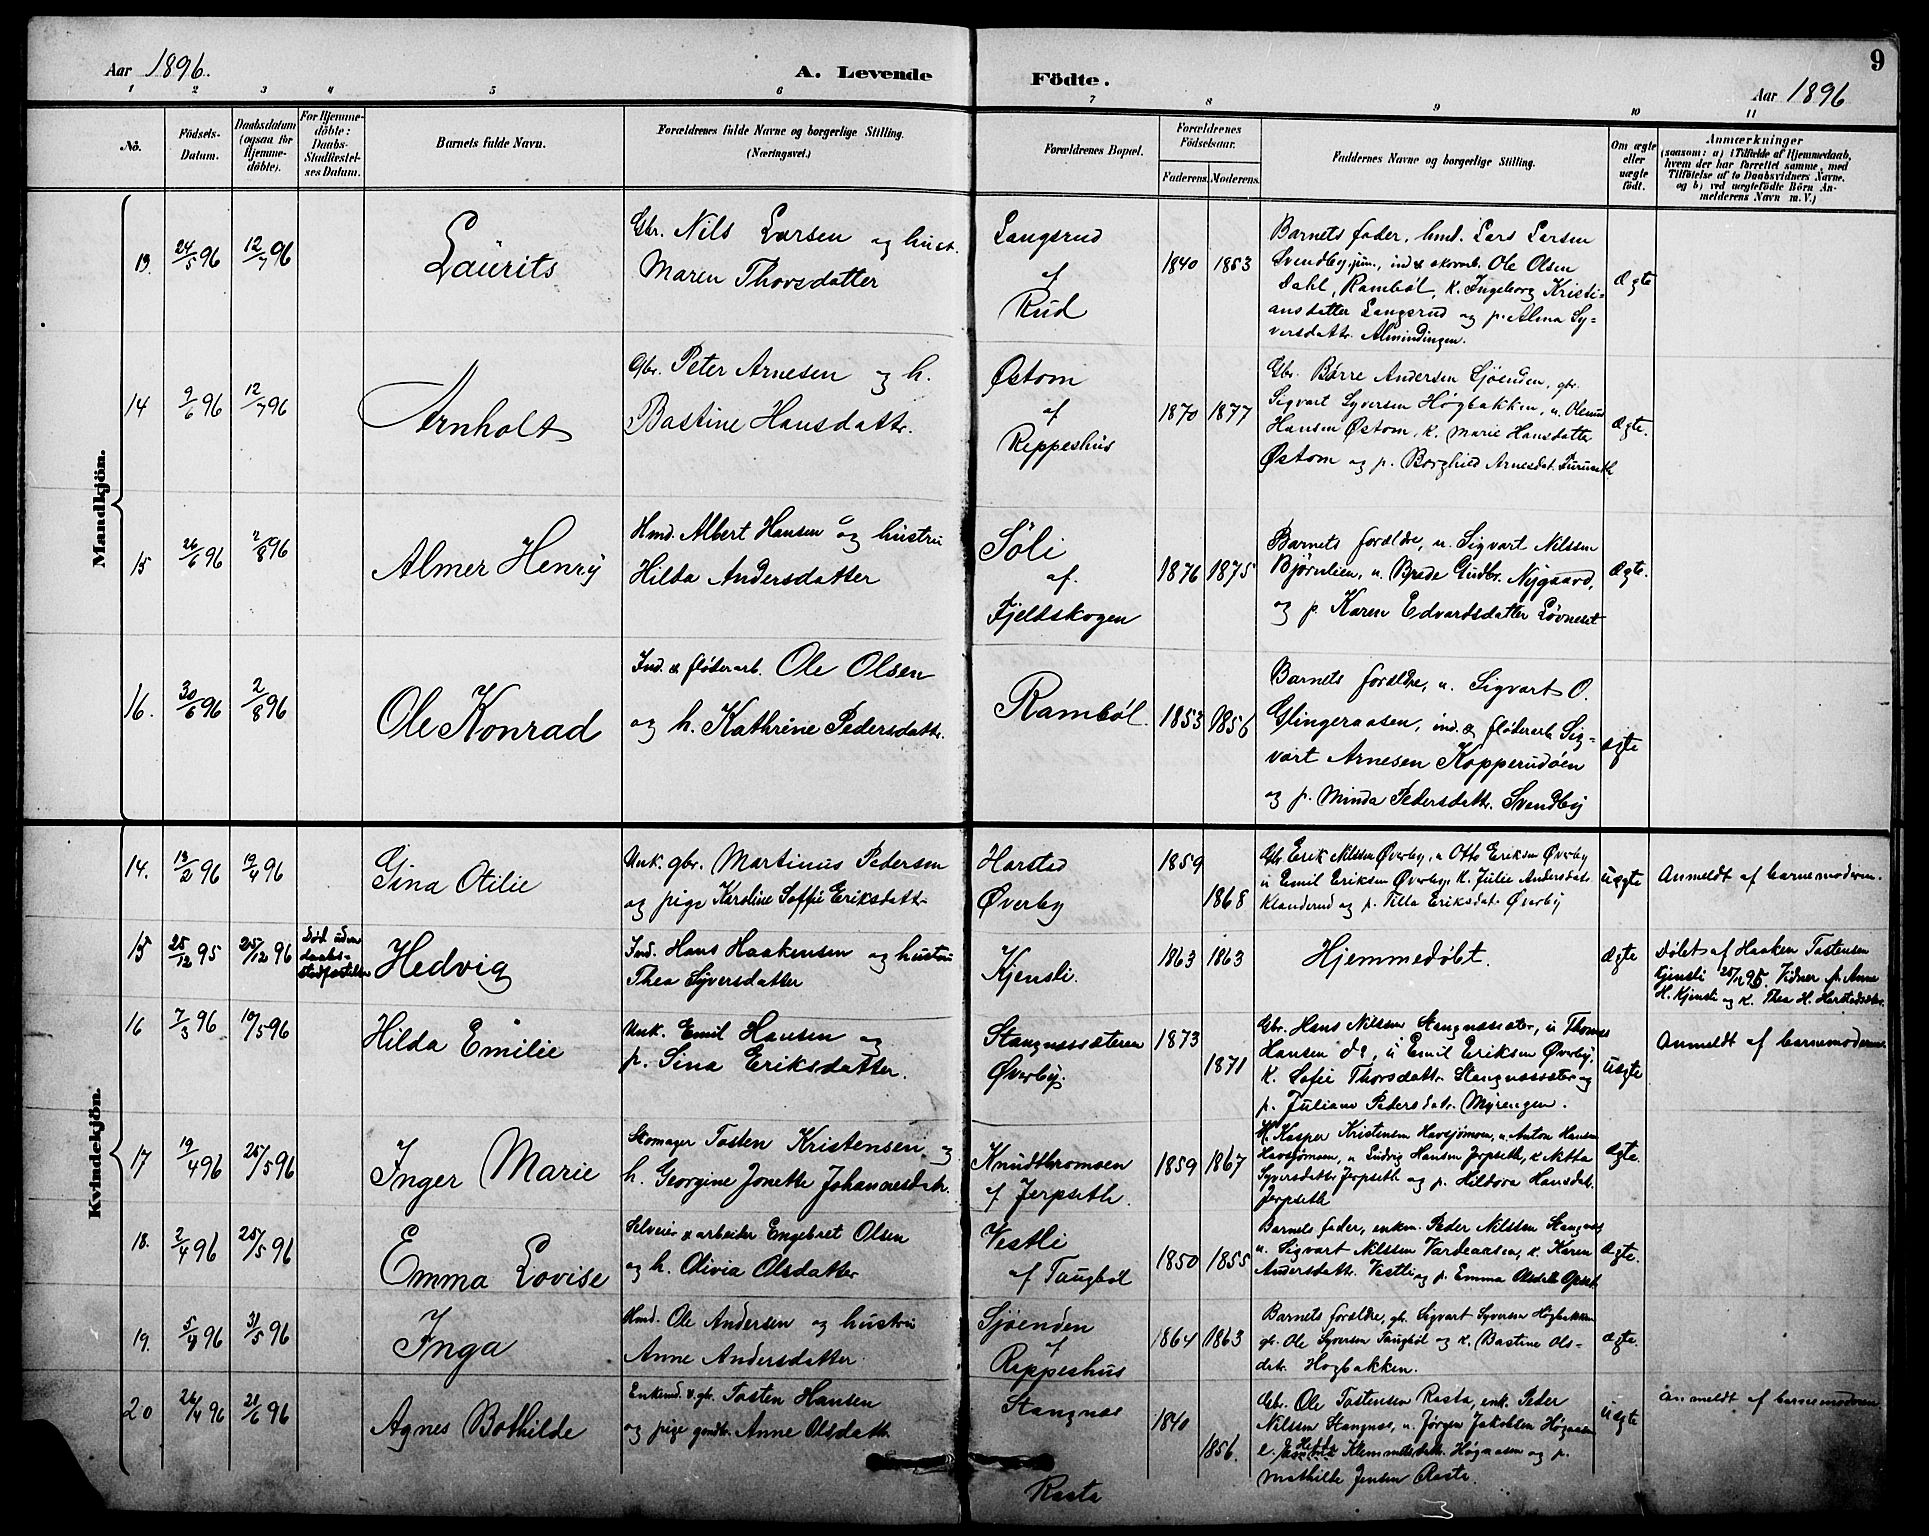 Aar 1896.
A. Levende
Födte.
9
Aar 1896
1 2 3 4 5 6 7 8 9 10 11
No.
Födsels-
Datum.
Daabsdatum
(ogsaa for
Hjemme-
döbte).
For Hjemme-
döbte:
Daabs-
Stadfæstel-
ses Datum.
Barnets fulde Navn.
Forældrenes fulde Navne og borgerlige Stilling.
(Næringsvei.)
Forældrenes Bopæl.
Forældrenes
Födselsaar.
Faderens. Moderens.
Faddernes Navne og borgerlige Stilling.
Om ægte
eller
uægte
födt.
Anmærkninger
(saasom: a) i Tilfælde af Hjemmedaab,
hvem der har forrettet samme, med
Tilföielse af to Daabsvidners Navne.
og b) ved uægtefödte Börn An-
melderens Navn m. V.)
Mandkjön.
13.
24/5 96
12/7 96
Laurits
Gbr. Nils Larsen og hust.
Maren Thorsdatter
Langsrud
af
Rud
1840 1853
Barnets fader, hmd. Lars Larsen
Svendby jun., ind. & skovarb. Ole Olsen
Dahl, Rambøl, k. Ingeborg Kristi-
ansdatter Langsrud og p. Alma Sy-
versdattr. Almindingen.
Ægte
14
9/6 96
12/7 96
Arnholt
Gbr. Peter Arnesen og h.
Bastine Hansdattr.
Østom
af
Reppeshus
1870 1877
Gbr. Børre Andersen Sjøenden, gbr.
Sigvart Syversen Høgbakken, u. Olenus
Hansen Østom, k. Marie Hansdatter
Østom og p. Borghild Arnesdat. Furuseth
Ægte.
15
26/6 96
2/8 96
Almer Henry
Hmd. Albert Hansen og hustru
Hilda Andersdatter
Søli
af.
Fjeldskogen
1876 1875
Barnets forældre, u. Sigvart Nilssen
Bjørnlien, u. Brede Gudbr. Nygaard,
og p. Karen Edvardsdatter Løvneset
Ægte.
16.
30/6 96
2/8 96
Ole Konrad
Ind. & fløderarb. Ole Olsen
og h. Kathrine Pedersdattr.
Rambøl.
1853 1856
Barnets forældre, u. Sigvart O.
Glingeraasen, ind. & fløderarb. Sig-
vart Arnesen Kopperudøen
og p. Minda Pedersdattr. Svendby
Ægte
Kvindekjön.
14.
13/2 96
19/4 96
Gina Otilie
Unk. gbr. Martinus Pedersen
og pige Karoline Soffie Eriksdattr
Harstad
Øverby
1859
1868
Gbr. Erik Nilssen Øverby, u. Otto Eriksen Øverby
u Emil Eriksen Øverby, k. Julie Andersdat.
Klanderud og p. Tilla Eriksdat. Øverby
uægte
Anmeldt af barnemoderen.
15
25/12 95
25/12 96
Død uden
daabs-
stadfæstelse
Hedvig
Ind. Hans Haakensen og hustru
Thea Syversdatter
Kjensli.
1863 1863
Hjemmedøbt.
Ægte
Døbt af Haaken Tostensen
Kjensli 25/12 95. Vidner p. Anne
H. Kjensli og k. Thea H. Harstadsæter.
16
7/3 96
10/5 96
Hilda Emilie
Unk. Emil Hansen og
p. Sina Eriksdatter.
Stangnessæteren
Øverby.
1873
1871
Gbr. Hans Nilssen Stangnessæter, u Thomas
Hansen do, u Emil Eriksen Øverby.
k. Sofie Thorsdattr. Stangnessæter og
p. Juliane Pedersdatr. Myrengen.
uægte
Anmeldt af barnemoderen.
17
19/4 96
25/5 96
Inger Marie
Skomager Tosten Kristensen og
h. Georgine Jonette Johannesdatr.
Knudtbromoen
af Jerpseth.
1859 1867
H. Kasper Kristensen Havsjømoen, u. Anton Hansen
Havsjømoen, u Ludvig Hansen Jerpseth, k. Mitta
Syversdatter Jerpseth og p. Hildora Hansdat.
Jerpseth
Ægte.
18.
2/4 96
25/5 96
Emma Lovise
Selveier & arbeider Engebret Olsen
og h. Olivia Olsdatter
Vestli
af Taugbøl
1850 1855
Barnets fader, enkem. Peder Nilssen Stangnes
u. Sigvart Nilssen Vardeaasen, k. Karen
Andersdattr. Vestli og p. Emma Olsdatt. Opset.
Ægte.
19.
5/4 96
31/5 96
Inga
Hmd. Ole Andersen og hustru
Anne Andersdatter.
Sjøenden
af
Reppeshus
1864 1863
Barnets forældre, gbr. Sigvart Syversen Høgbakken
gbr. Ole Syversen Taugbøl og k. Bastine Ols-
datr. Høgbakken.
Ægte.
20
26/4 96
21/6 96
Agnes Bothilde
Enkemd. & gbr. Tosten Hansen
og pige Anne Olsdattr.
Stangnæs
Rasta
1840
1856.
Gbr. Ole Tostensen Rasta, enk. Peder
Nilssen Stangnes, u. Jørgen Jakobsen Høgaasen
e. Helene Klemmetsdattr. Høgaasen og p.
Mathilde Jensen Rasta.
uægte
Anmeldt af barnemoderen
3